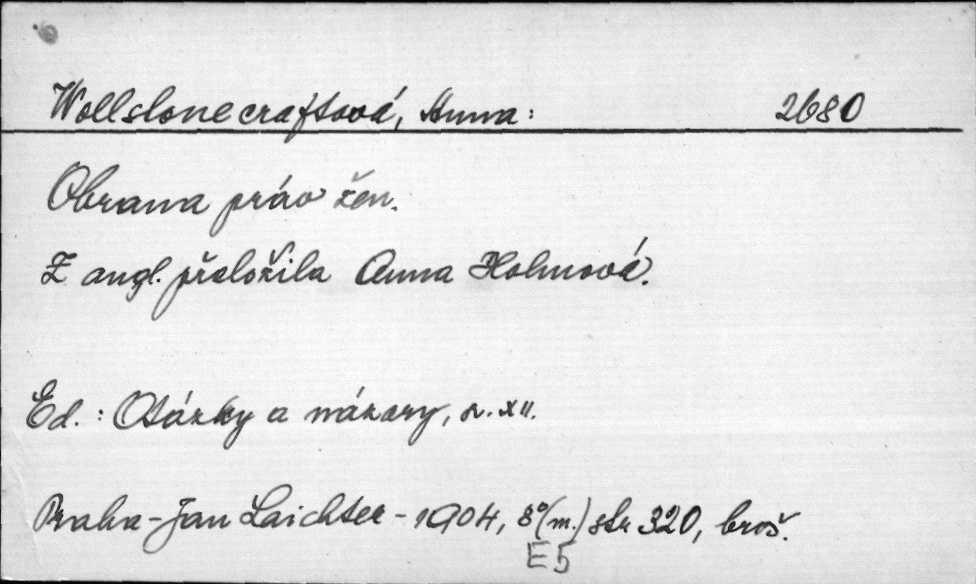 Wollstonecraftová, Anna: 2680
Obrana práv žen.
Z angl. přeložila Anna Holmová.
Ed.: Otázky a názory, sv. XII.
Praha - Jan Laichter - 1904, 8°(m.) str 320, brož.
E5